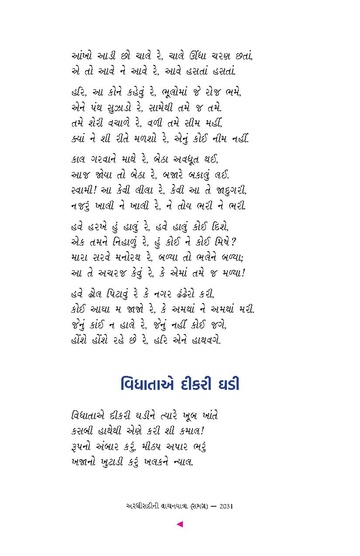 આંખો આડી છો ચાલે રે, ચાલે ઊંધા ચરણ છતાં,
એ તો આવે ને આવે રે, આવે હસતાં હસતાં.
હરિ, આ કોને કહેતું રે, ભૂલોમાં જે રોજ ભમે,
એને પંથ સુઝાડો રે, સામેથી તમે જ તમે.
તમે શેરી વચાળે રે, વળી તમે સીમ મહીં,
ક્યાં ને શી રીતે મળશો રે, એનું કોઈ નીમ નહીં.
કાલ ગરવાને માથે રે, બેઠા અવધૂત થઈ,
આજ જોયા તો બેઠા રે, બજારે બકાલું લઈ.
સ્વામી! આ કેવી લીલા રે, કેવી આ તે જાદુગરી,
નજરું ખાલી ને ખાલી રે, ને તોય ભરી ને ભરી.
હવે હરખે હું હાલું રે, હવે હાલું કોઈ દિશે,
એક તમને નિહાળું રે, હું કોઈ ને કોઈ મિષે?
મારા સરવે મનોરથ રે, બળ્યા તો ભલેને બળ્યા;
આ તે અચરજ કેવું રે, કે એમાં તમે જ મળ્યા!
હવે ઢોલ પિટાવું રે કે નગર ઢંઢેરો કરી,
કોઈ આઘા મ જાજો રે, કે અમથાં ને અમથાં મરી.
જેનું કાંઈ ન હાલે રે, જેનું નહીં કોઈ જગે,
હોંશે હોંશે રહે છે રે, હરિ એને હાથવગે.
વિધાતાએ દીકરી ઘડી
વિધાતાએ દીકરી ઘડીને ત્યારે ખૂબ ખાંતે
કસબી હાથેથી એણે કરી શી કમાલ!
રૂપનો અંબાર કર્યુ, મીઠપ અપાર ભર્યુ
ખજાનો ખુટાડી કર્યુ ખલકને ન્યાલ.
અરધીસદીની વાચનયાત્રા (સમગ્ર) — 2031